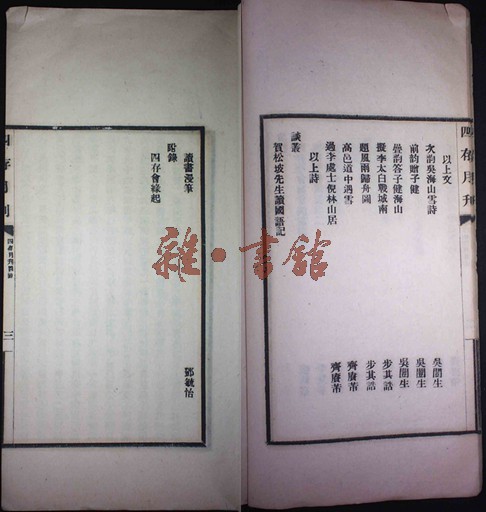 四存月刊
以上文
次韵吳海山雪詩 吳闓生
前韵贈子健 吳闓生
疊韵答子健海山 吳闓生
擬李太白戰城南 步其誥
題風雨歸舟圖 步其誥
高邑道中遇雪 齊賡芾
過李處士倪林山居 齊賡芾
以上詩
談叢
賀松坡先生讀國語記
讀書漫筆 鄧毓怡
附錄
四存會緣起
四存月刊
四存月刊
三
雜·書館